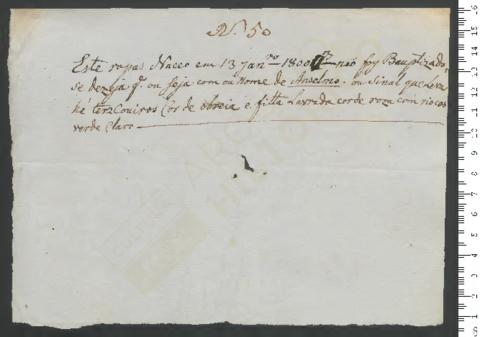 Nº 50
Este rapas Naceo em 13 Janrº 1800 não foy Bauptizado,
se dezeja q. ou seja com ou Nome de Anselmo. ou Sinal que Leva
hé terz Couiros Cor de obreia e fitta Lavrada cor de roza com riscos
verde Claro